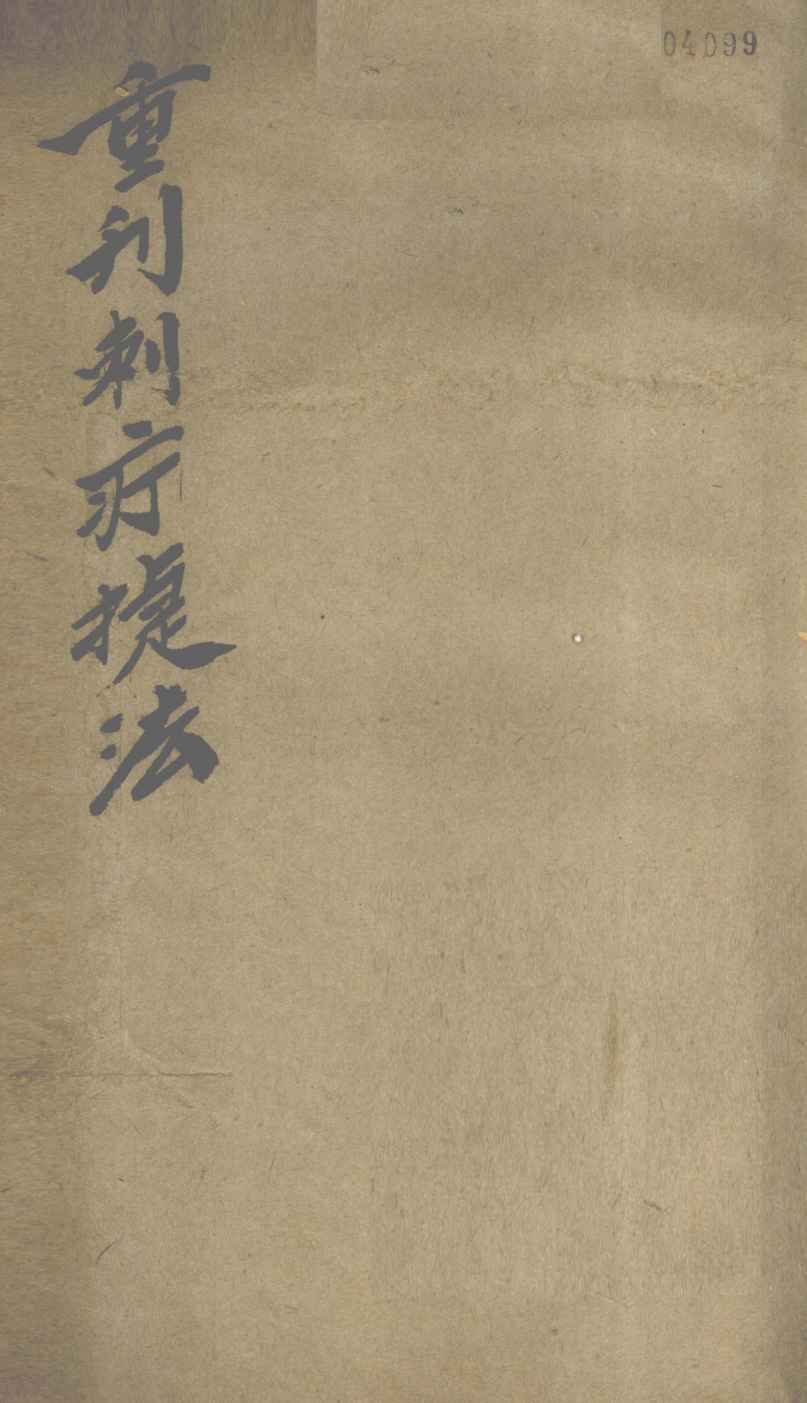 04099
重刊刺疔捷法